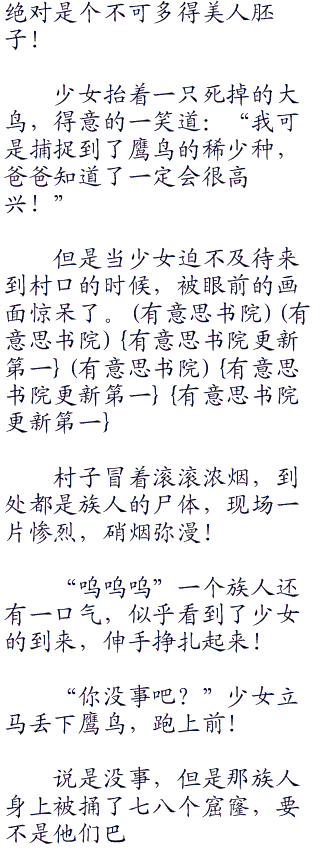 绝对是个不可多得美人胚
子！
少女抬着一只死掉的大
鸟，得意的一笑道：“我可
是捕捉到了鹰鸟的稀少种，
爸爸知道了一定会很高
兴！”
但是当少女迫不及待来
到村口的时候，被眼前的画
面惊呆了。(有意思书院) (有
意思书院) {有意思书院更新
第一} (有意思书院) {有意思
书院更新第一} {有意思书院
更新第一}
村子冒着滚滚浓烟，到
处都是族人的尸体，现场一
片惨烈，硝烟弥漫！
“呜呜呜”一个族人还
有一口气，似乎看到了少女
的到来，伸手挣扎起来！
“你没事吧？”少女立
马丢下鹰鸟，跑上前！
说是没事，但是那族人
身上被捅了七八个窟窿，要
不是他们巴